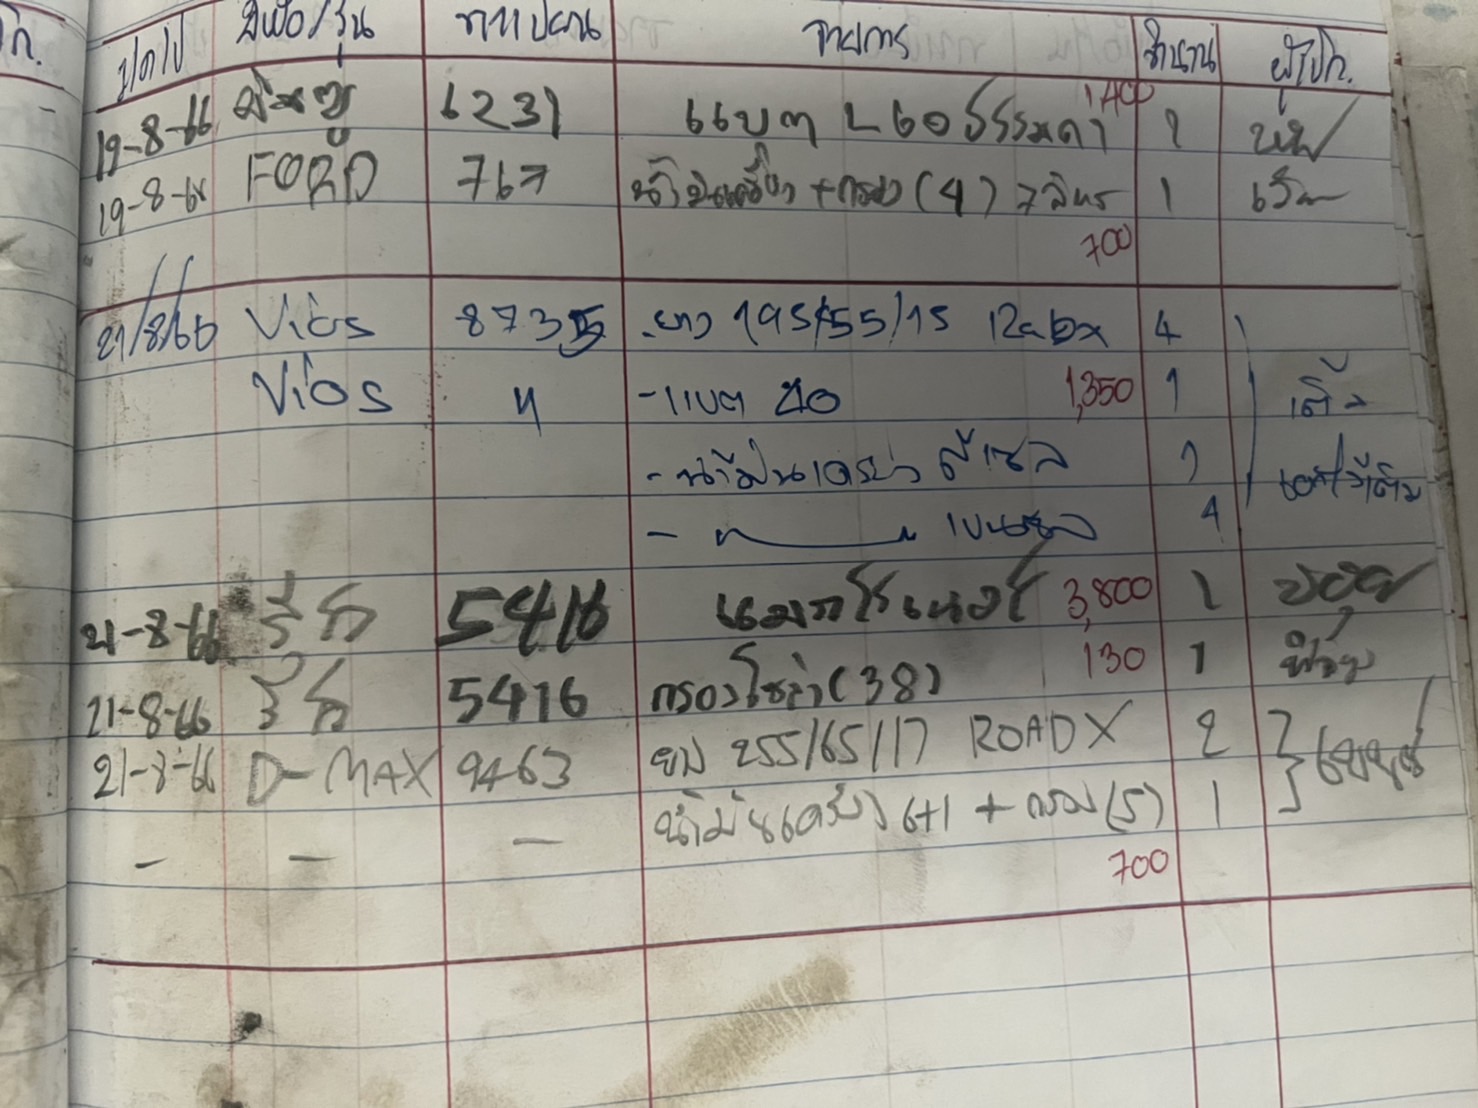 ว/ด/ป ยี่ห้อ/รุ่น ทะเบียน รายการ จำนวน ผู้เบิก.
1,400
19-8-66 อีซูซุ 6231 แบต L60 ธรรมดา 1
19-8-66 FORD 767 น้ำมันเครื่อง + กรอง (4) 7 ลิตร 1
700
21/8/66 Vios 8735 - ยาง 195/55/15 4
Vios 〃 - แบต 1,350 1
- น้ำมันเครื่อง ดีเซล 1
- 〃 เบนซิล 4
21-8-66 รีโว้ 5416 3,800 1
130
21-8-66 รีโว้ 5416 กรองโซล่า (38) 1
21-8-66 D-MAX 9463 ยาง 255/65/17 ROADX 2
- - - น้ำมันเครื่อง 6+1 + กรอง (5) 1
700